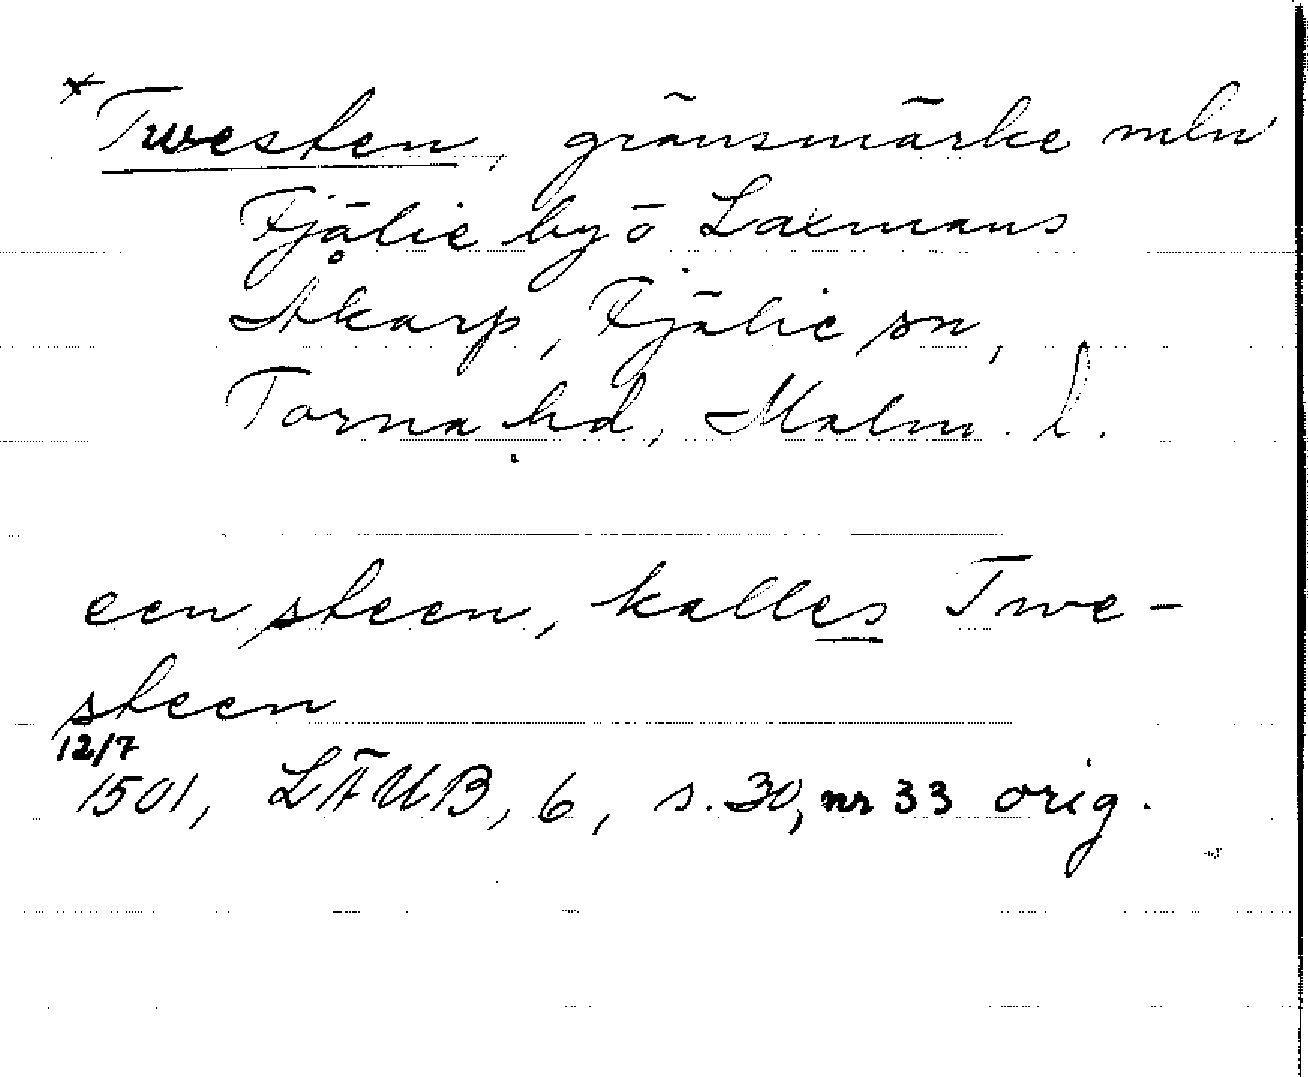 *Twesten, gränsmärke mln
Fjälie by o Laxmans
Åkarp, Fjälie sn,
Torna hd, Malm. l.
een steen, kalles Twe-
steen
12/7
1501, LÄUB, 6, s. 30, nr 33 orig.